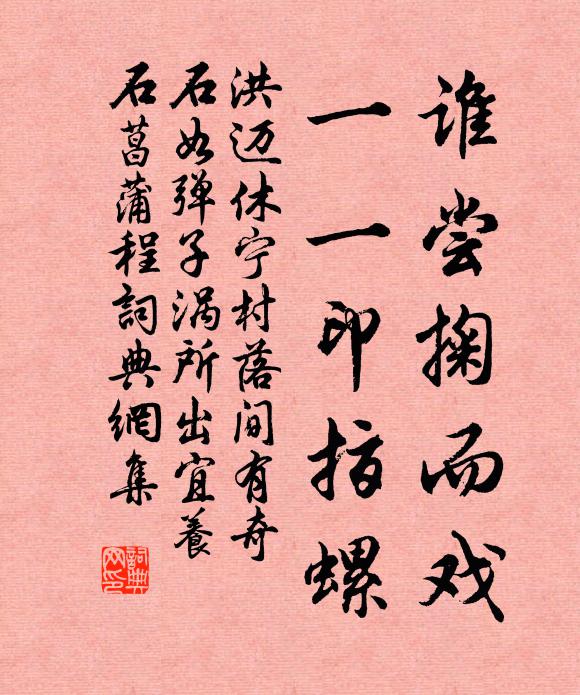 谁尝掬而戏
一一印指螺
洪迈休宁村落间有奇
石如弹子涡所出宜養
石菖蒲程詞典網集
詞典网印